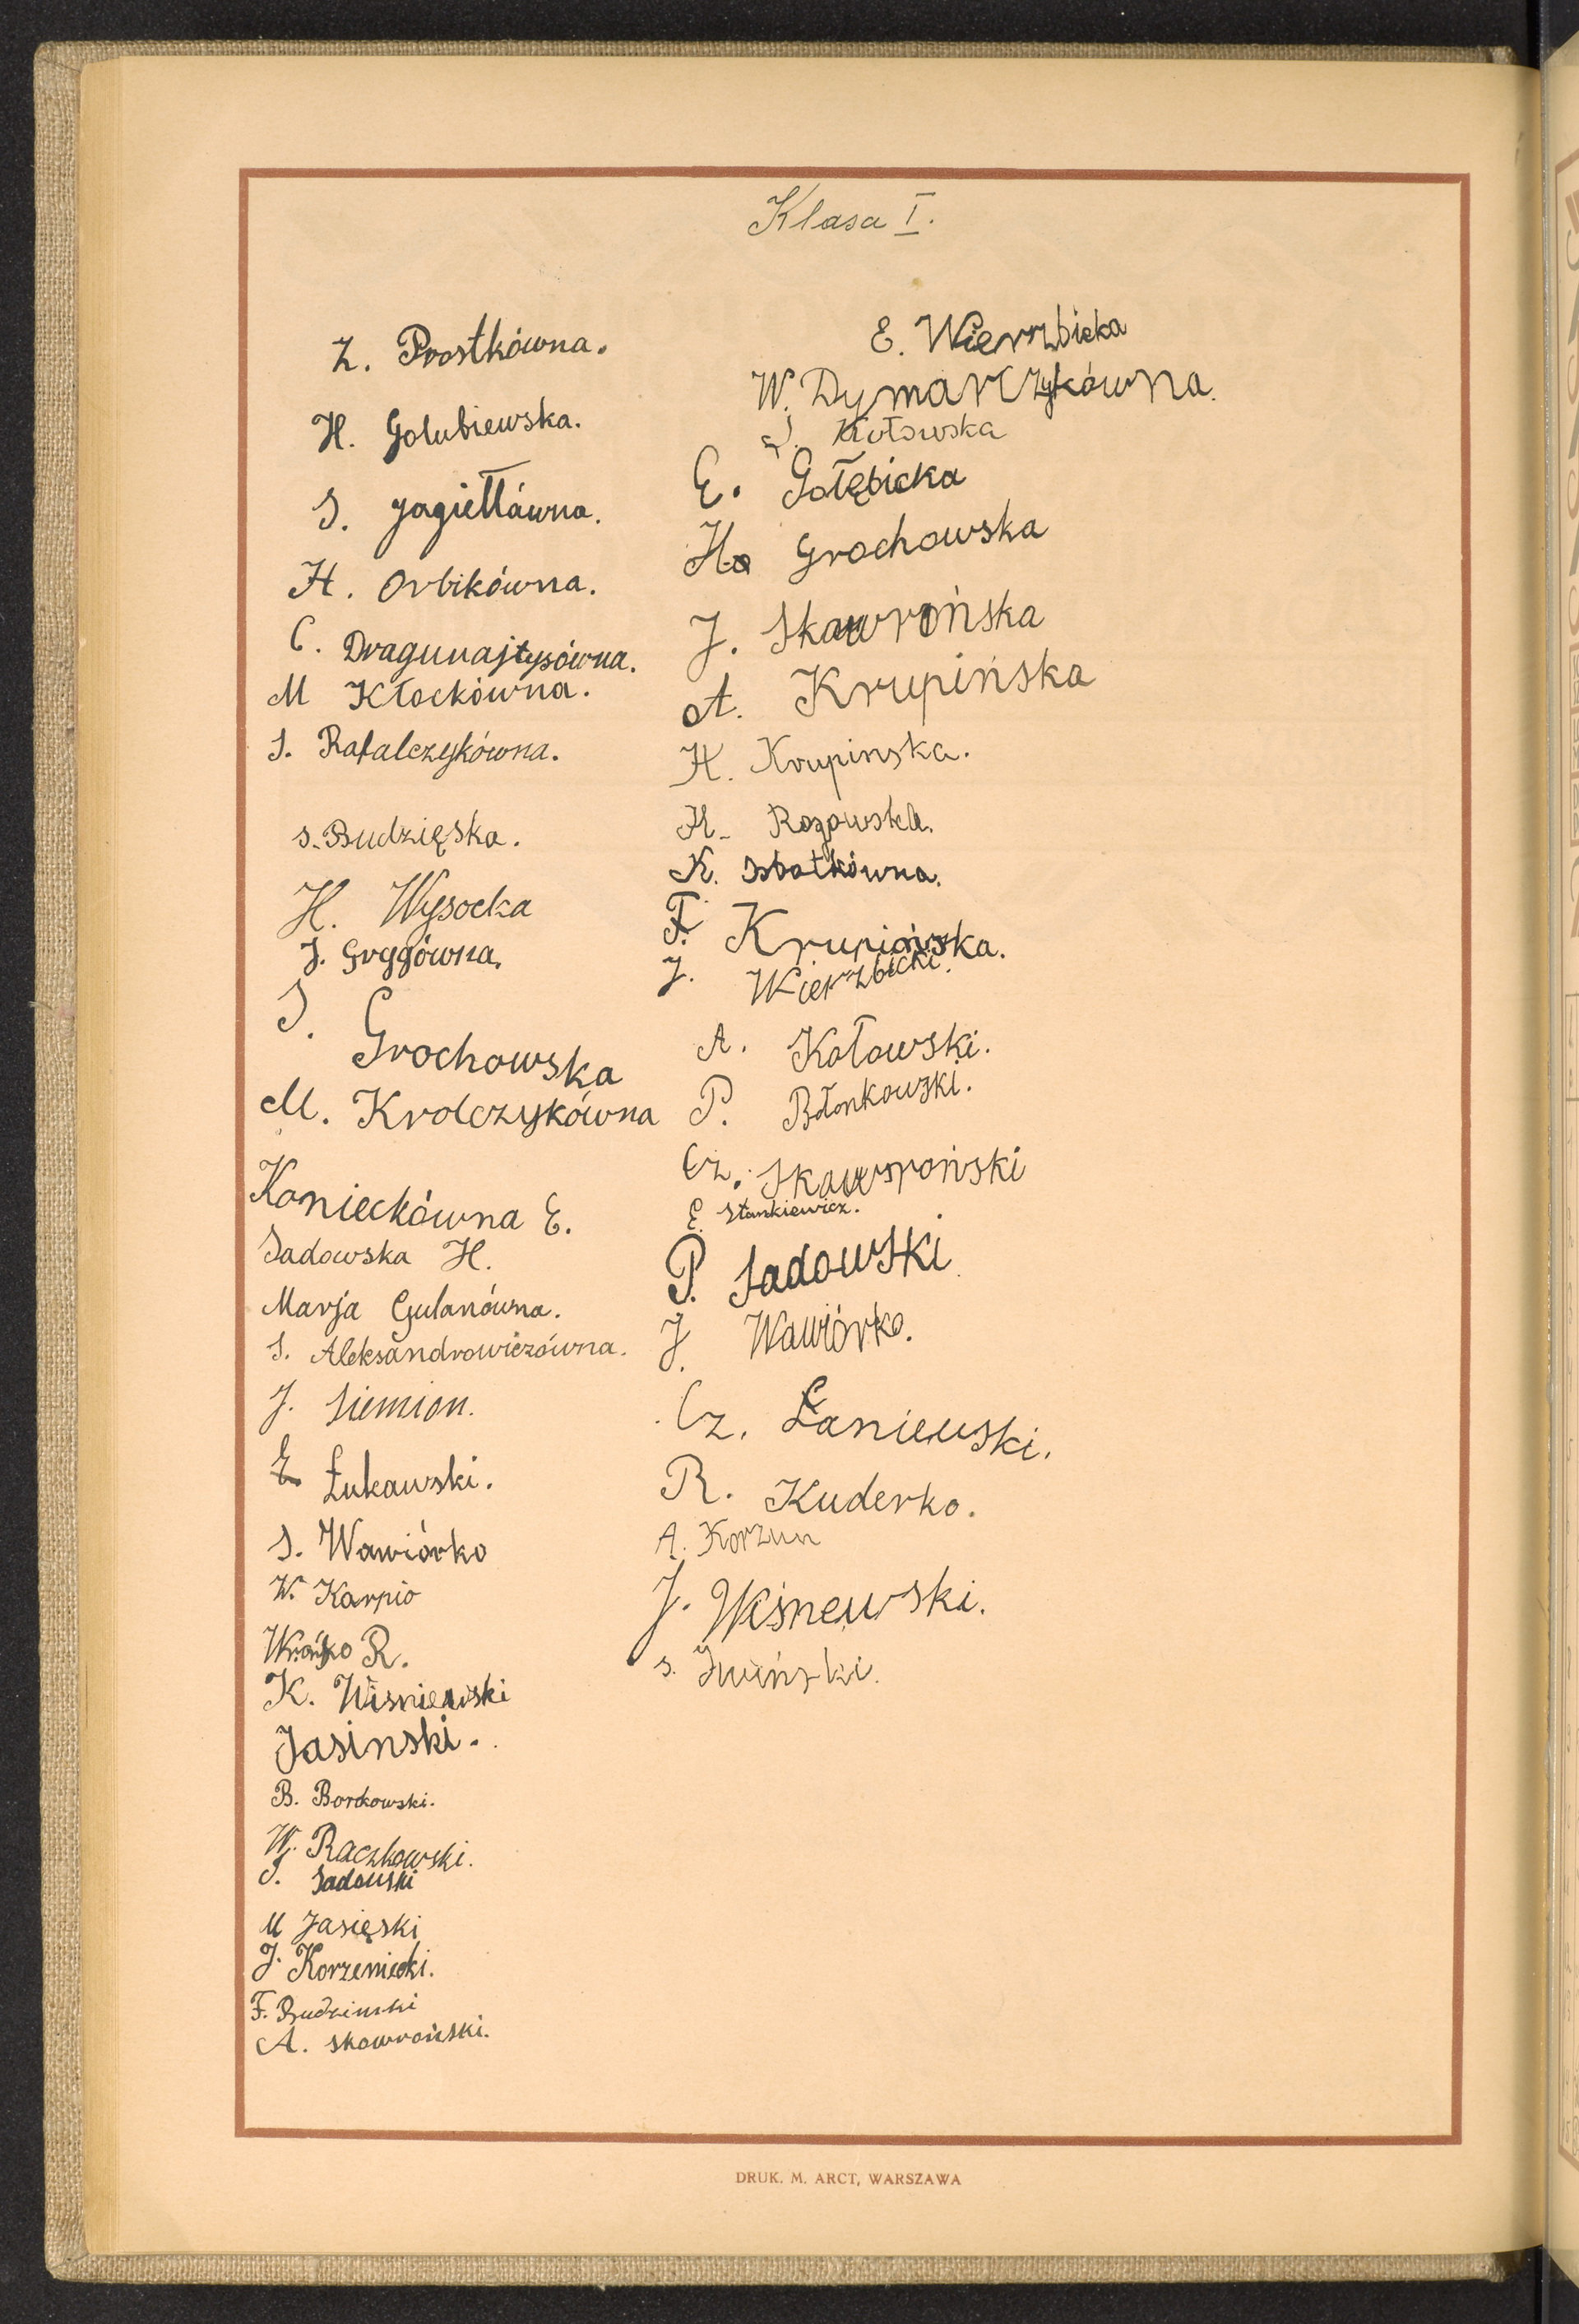 Klasa I.
Z. Prostkówna.
H. Golubiewska.
J. Jagiełłówna.
H. Orbikówna.
C. Dragunajtysówna.
M Kłockówna.
S. Rafalczykówna.
S. Budzięska.
H. Wysocka
J. Grygówna.
S. Grochowska
M. Krolczykówna
Konieckówna E.
Sadowska H.
Marja Gulanówna.
S. Aleksandrowiczówna.
J. Siemion.
E Łukawski.
S. Wawiórko
W. Karpio
R.
K. Wisniewski
Jasinski.
B. Borkowski.
W. Raczkowski.
J. Sadowski
M Jasięski
J. Korzeniecki.
F. Budzinski
A. Skowroński.
E. Wierzbicka
W. Dymarczykówna.
Kotowska
E. Gołębicka
H. Grochowska
J. Skawrońska
A. Krupińska
H. Krupinska.
H. Rogowska.
K. Sbotkówna.
F. Krupińska.
J. Wierzbicki.
A. Kotowski.
P. Błonkowski.
Cz. Skawroński
E. Stankiewicz.
P. Sadowski
J. Wawiórko.
Cz. Łaniewski.
R. Kuderko.
A. Korzun
J. Wiśnewski.
S. Iwiński.
DRUK. M. ARCT, WARSZAWA